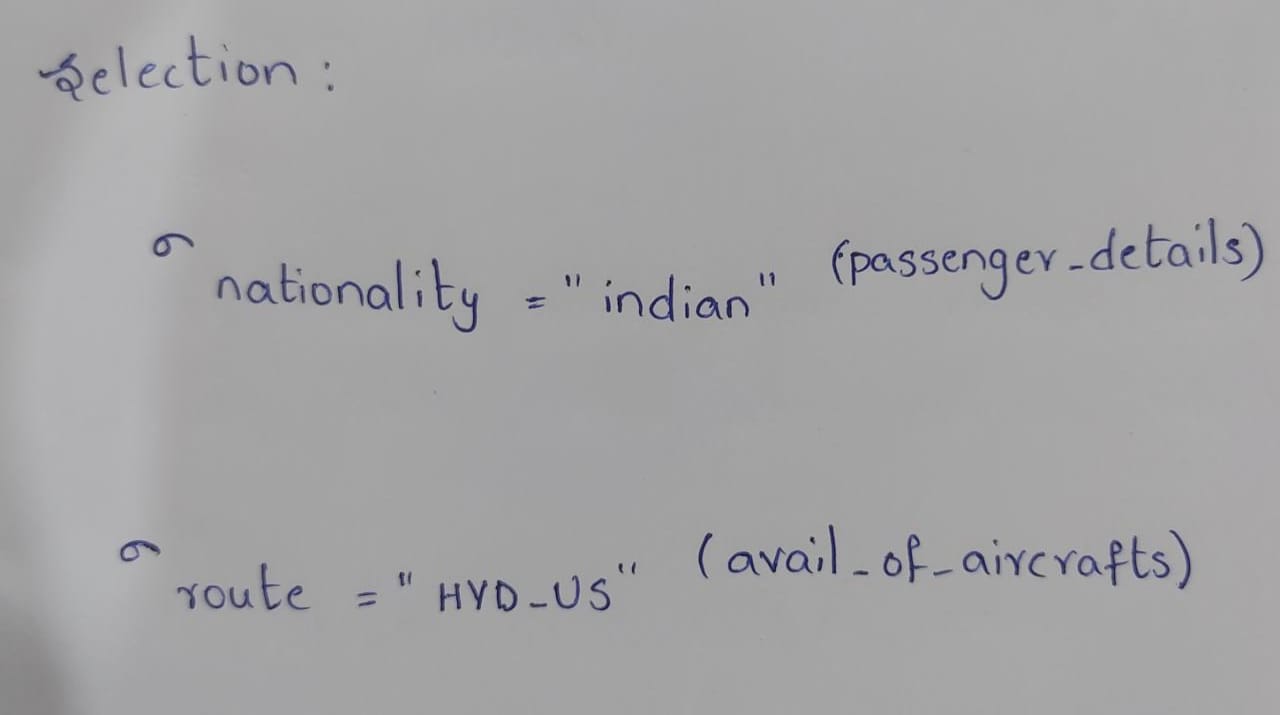 Selection :
σ nationality = "indian" (passenger_details)
σ route = "HYD_US" (avail_of_aircrafts)